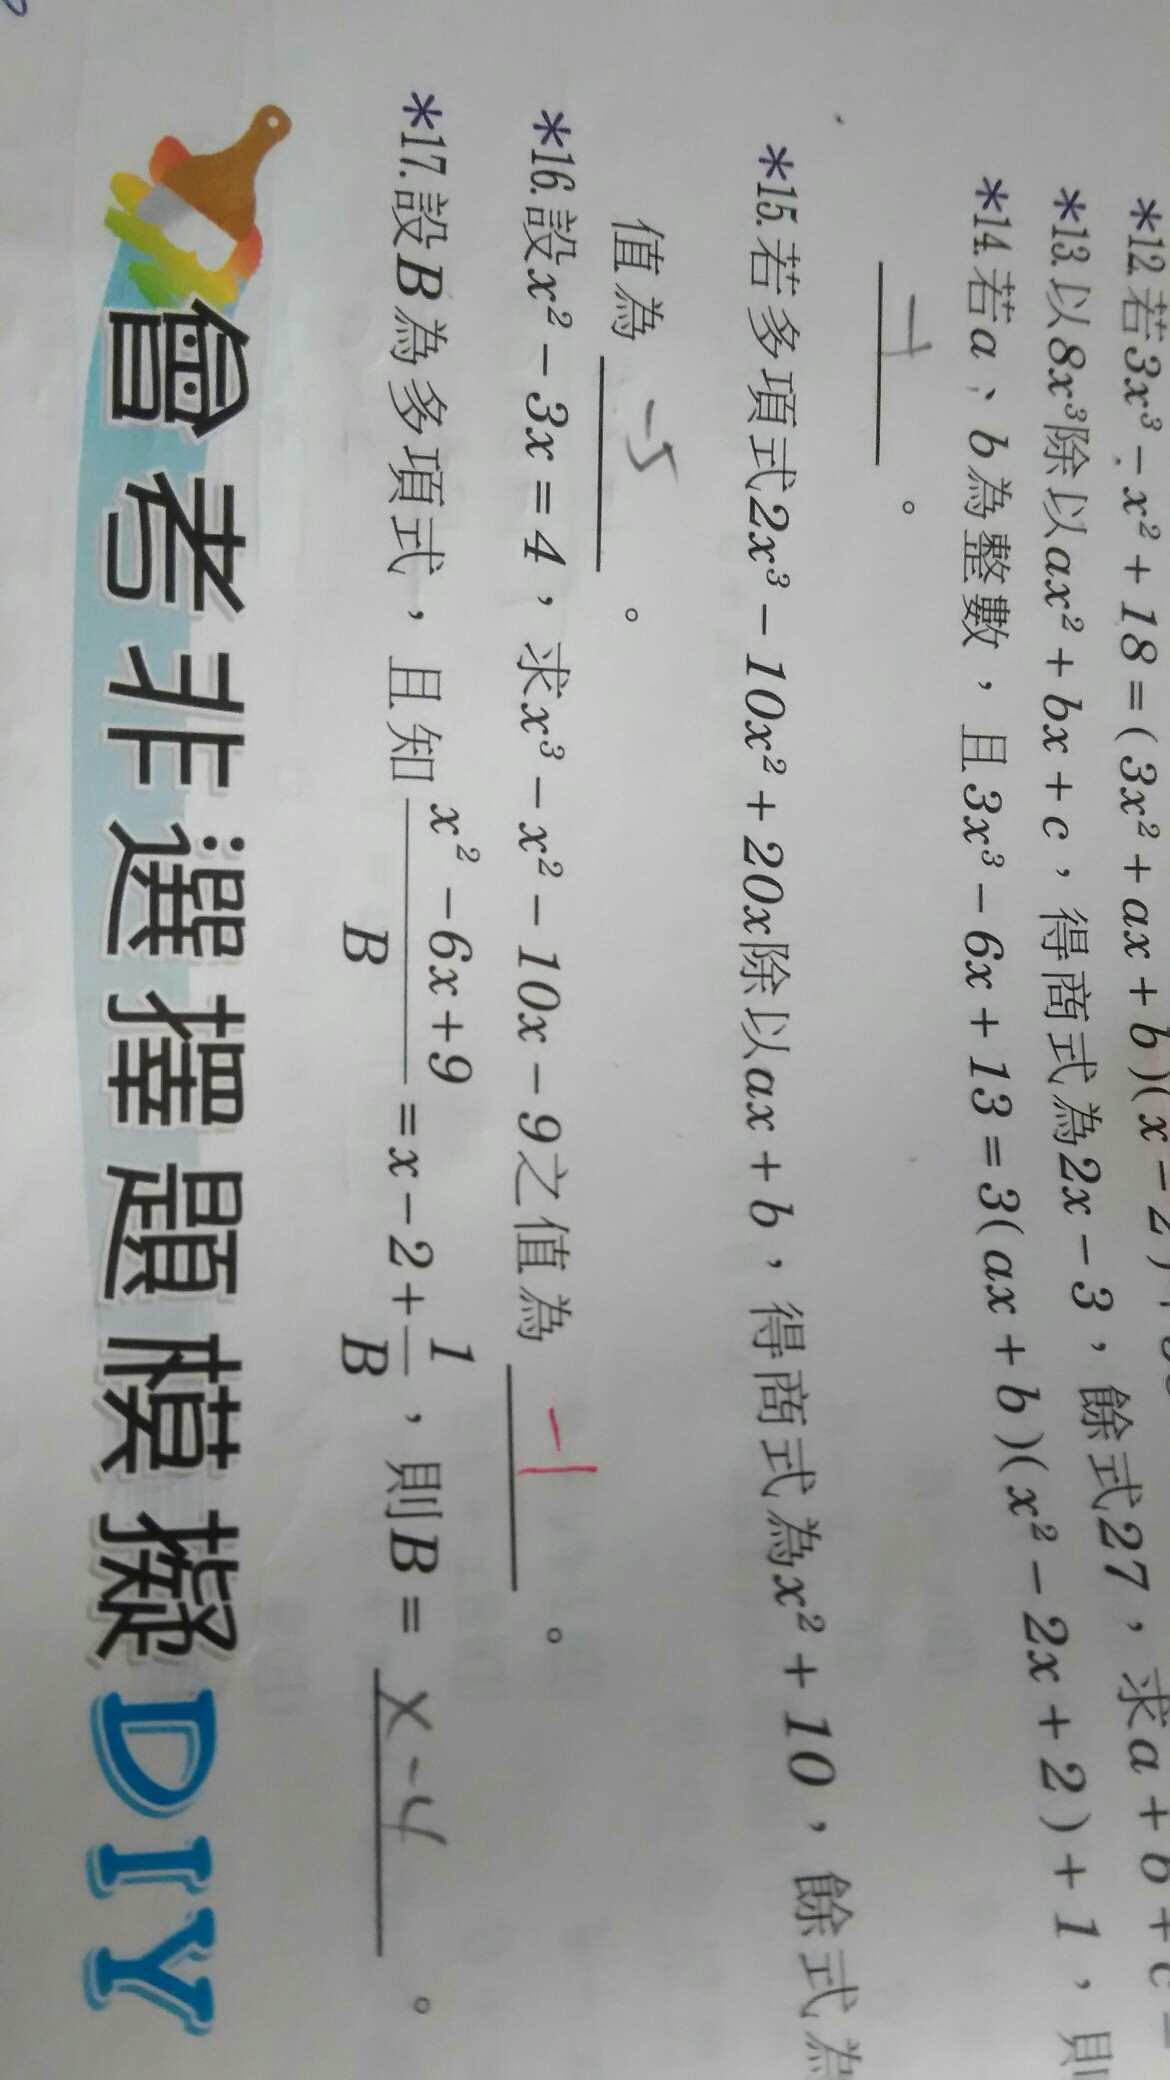 *12.若3x³-x²+18=(3x²+ax+b)(x-2)+
*13.以8x³除以ax²+bx+c，得商式為2x-3，餘式27，求a+b+c=
*14.若a、b為整數，且3x³-6x+13=3(ax+b)(x²-2x+2)+1，則
-1。
*15.若多項式2x³-10x²+20x除以ax+b，得商式為x²+10，餘式為
值為 -5。
*16.設x²-3x=4，求x³-x²-10x-9之值為 -1。
*17.設B為多項式，且知x²-6x+9/B=x-2+1/B，則B= x-4。
會考非選擇題模擬DIY